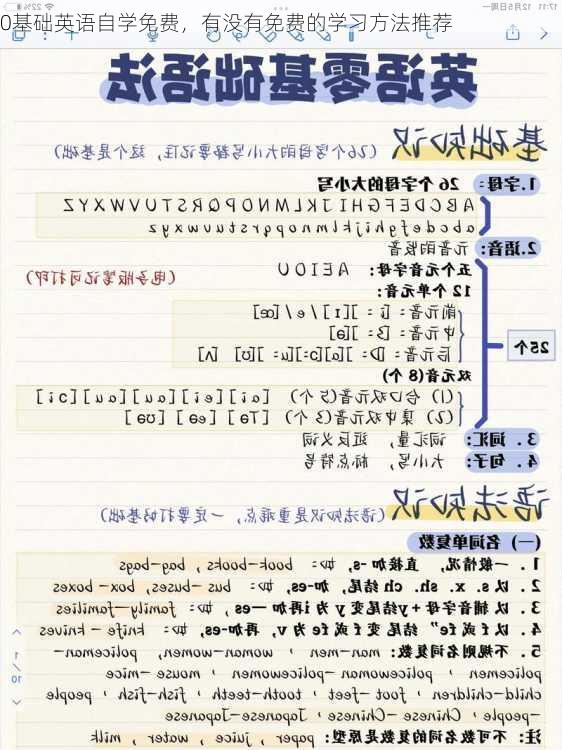 0基础英语自学免费，有没有免费的学习方法推荐
17:11 12月5日周一
22%
英语零基础语法
基础知识（26个字母的大小写都要记住，这个是基础）
1.字母： 26个字母的大小写
ABCDEFGHIJKLMNOPQRSTUVWXYZ
abcdefghijklmnopqrstuvwxyz
2.语音：元音的发音
五个元音字母： AEIOU
（电子版笔记可打印）
12个单元音：
前元音：[i：][ɪ] / e / [æ]
中元音：[ɜ：][ə]
后元音：[ɑ：][ɔ：][u：][ʊ] [ʌ]
25个
双元音(8个)
(1) 合口双元音(5个) [ai][ei][au][əu][ɔi]
(2) 集中双元音(3个) [ɪə][eə][ʊə]
3. 词汇： 词汇量， 近反义词
4. 句子： 大小写， 标点符号
语法知识（语法知识是重难点，一定要打好基础）
(一) 名词单复数
1. 一般情况， 直接加-s，如： book-books，bag-bags
2. 以s. x. sh. ch结尾，加-es，如： bus-buses，box-boxes
3. 以辅音字母+y结尾变y为i再加-es，如： family-families
4. 以f或fe”结尾变f或fe为v，再加-es，如： knife-knives
5. 不规则名词复数：man-men，woman-women，policeman-
policemen，policewoman-policewomen，mouse-mice
child-children，foot-feet，tooth-teeth，fish-fish，people
-people，Chinese-Chinese，Japanese-Japanese
注： 不可数名词的复数是原型：paper，juice，water，milk
1/10